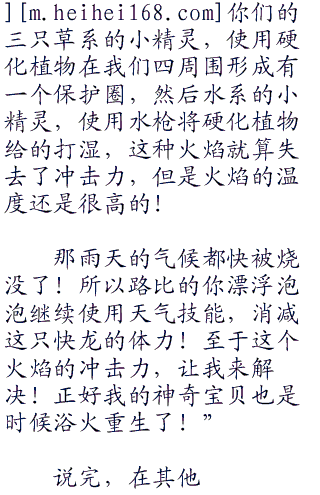 ][m.heihei168.com]你们的
三只草系的小精灵，使用硬
化植物在我们四周围形成有
一个保护圈，然后水系的小
精灵，使用水枪将硬化植物
给的打湿，这种火焰就算失
去了冲击力，但是火焰的温
度还是很高的！
那雨天的气候都快被烧
没了！所以路比的你漂浮泡
泡继续使用天气技能，消减
这只快龙的体力！至于这个
火焰的冲击力，让我来解
决！正好我的神奇宝贝也是
时候浴火重生了！”
说完，在其他